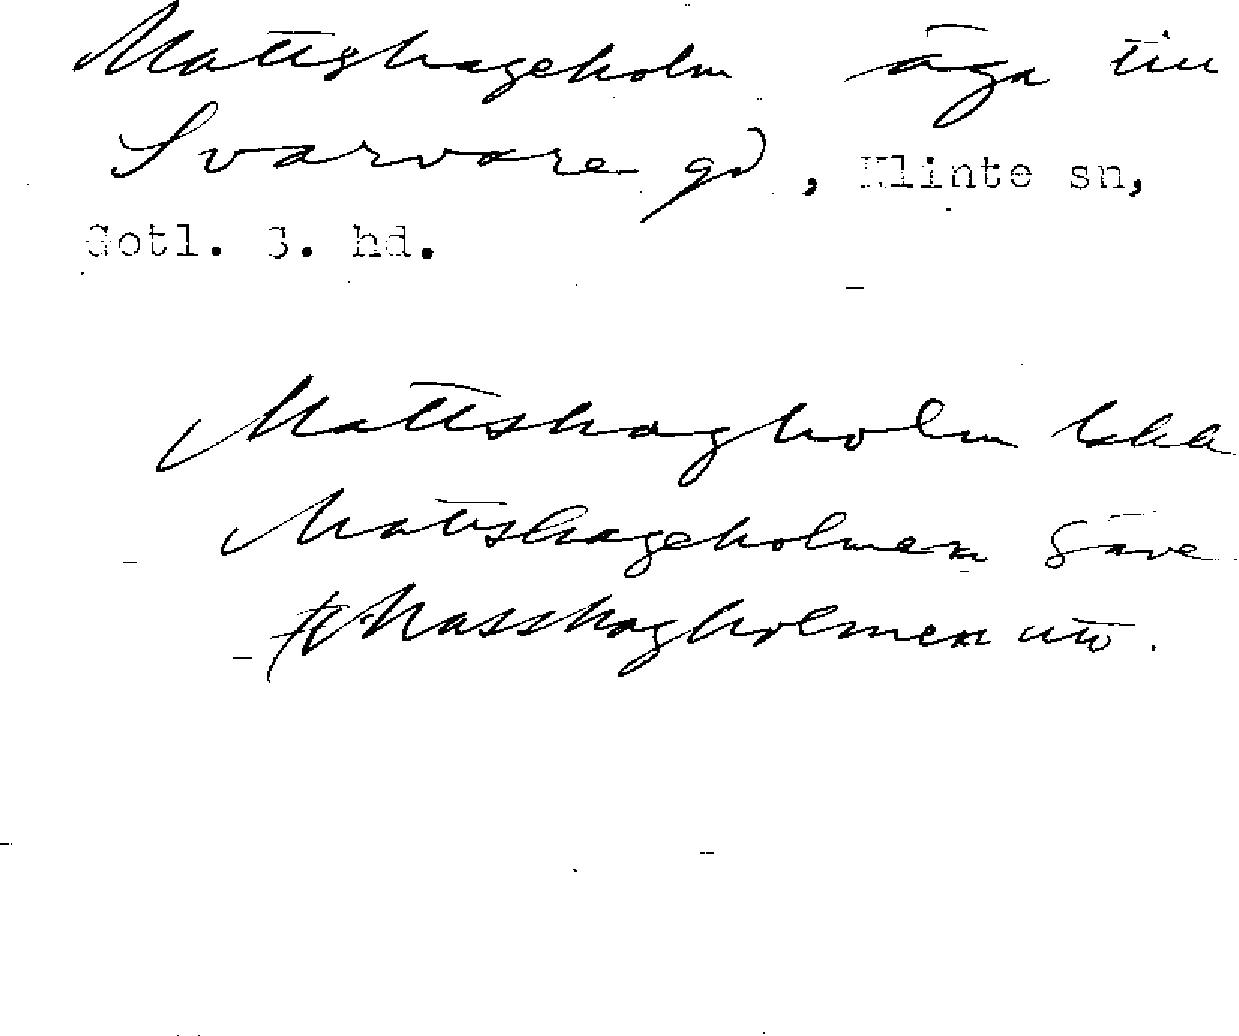 Mattshageholm, äga till
Svarvare gd, Klinte sn,
Gotl. 3. hd.
Mattshagholm
Mattshageholmen Säve
Masshagholmen utt.